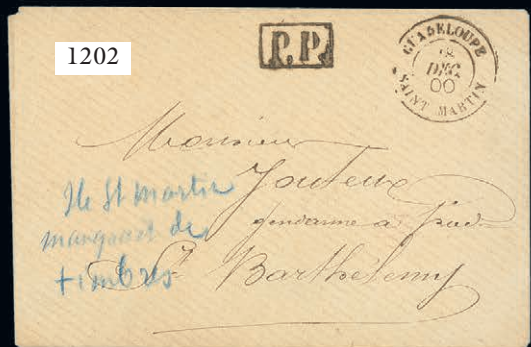 1202
P.P.
GUADELOUPE
DEC
00
SAINT MARTIN
Monsieur
Jouteux
gendarme à pied
St Barthélemy
Ile St Martin
manquant de
timbres